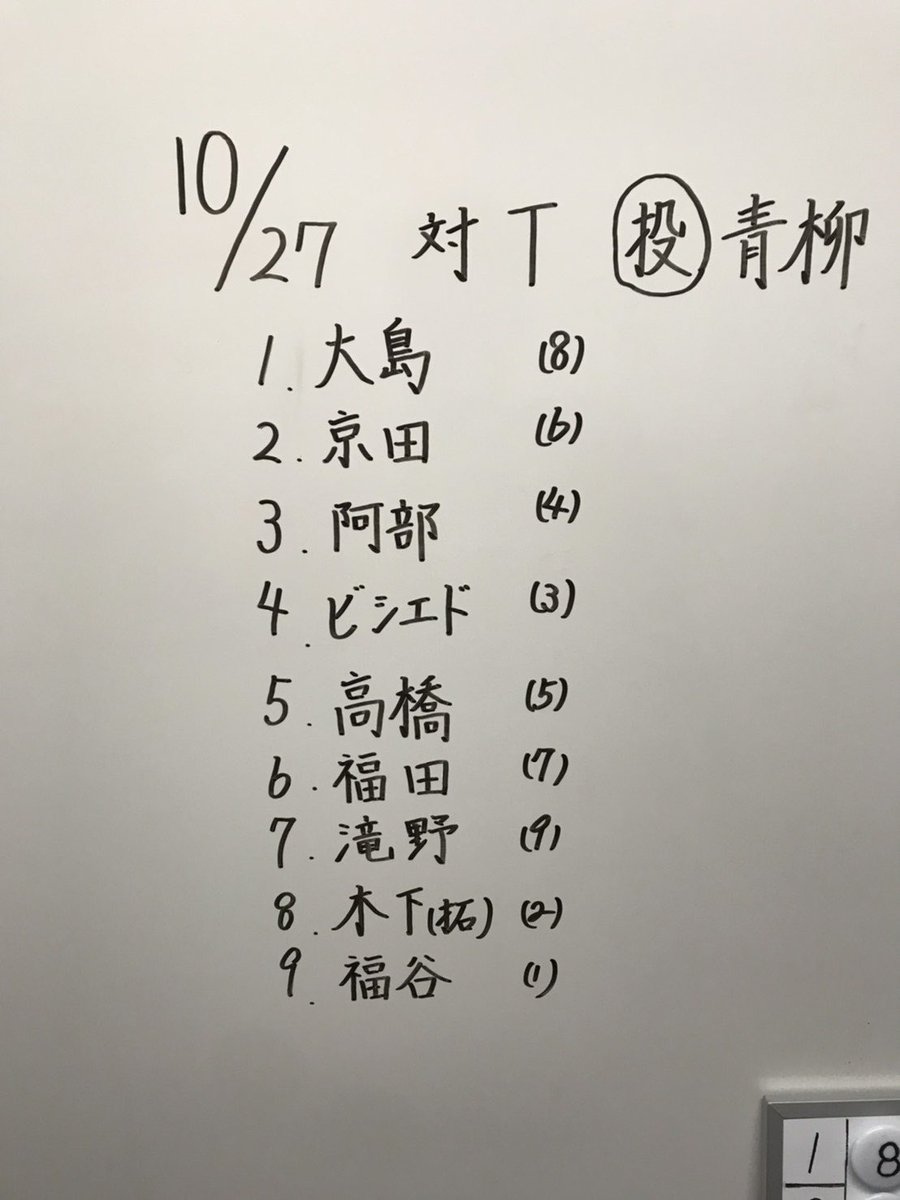 10/27 対T 投 青柳
1. 大島 (8)
2. 京田 (6)
3. 阿部 (4)
4. ビシエド (3)
5. 高橋 (5)
6. 福田 (7)
7. 滝野 (9)
8. 木下(拓) (2)
9. 福谷 (1)
1 8